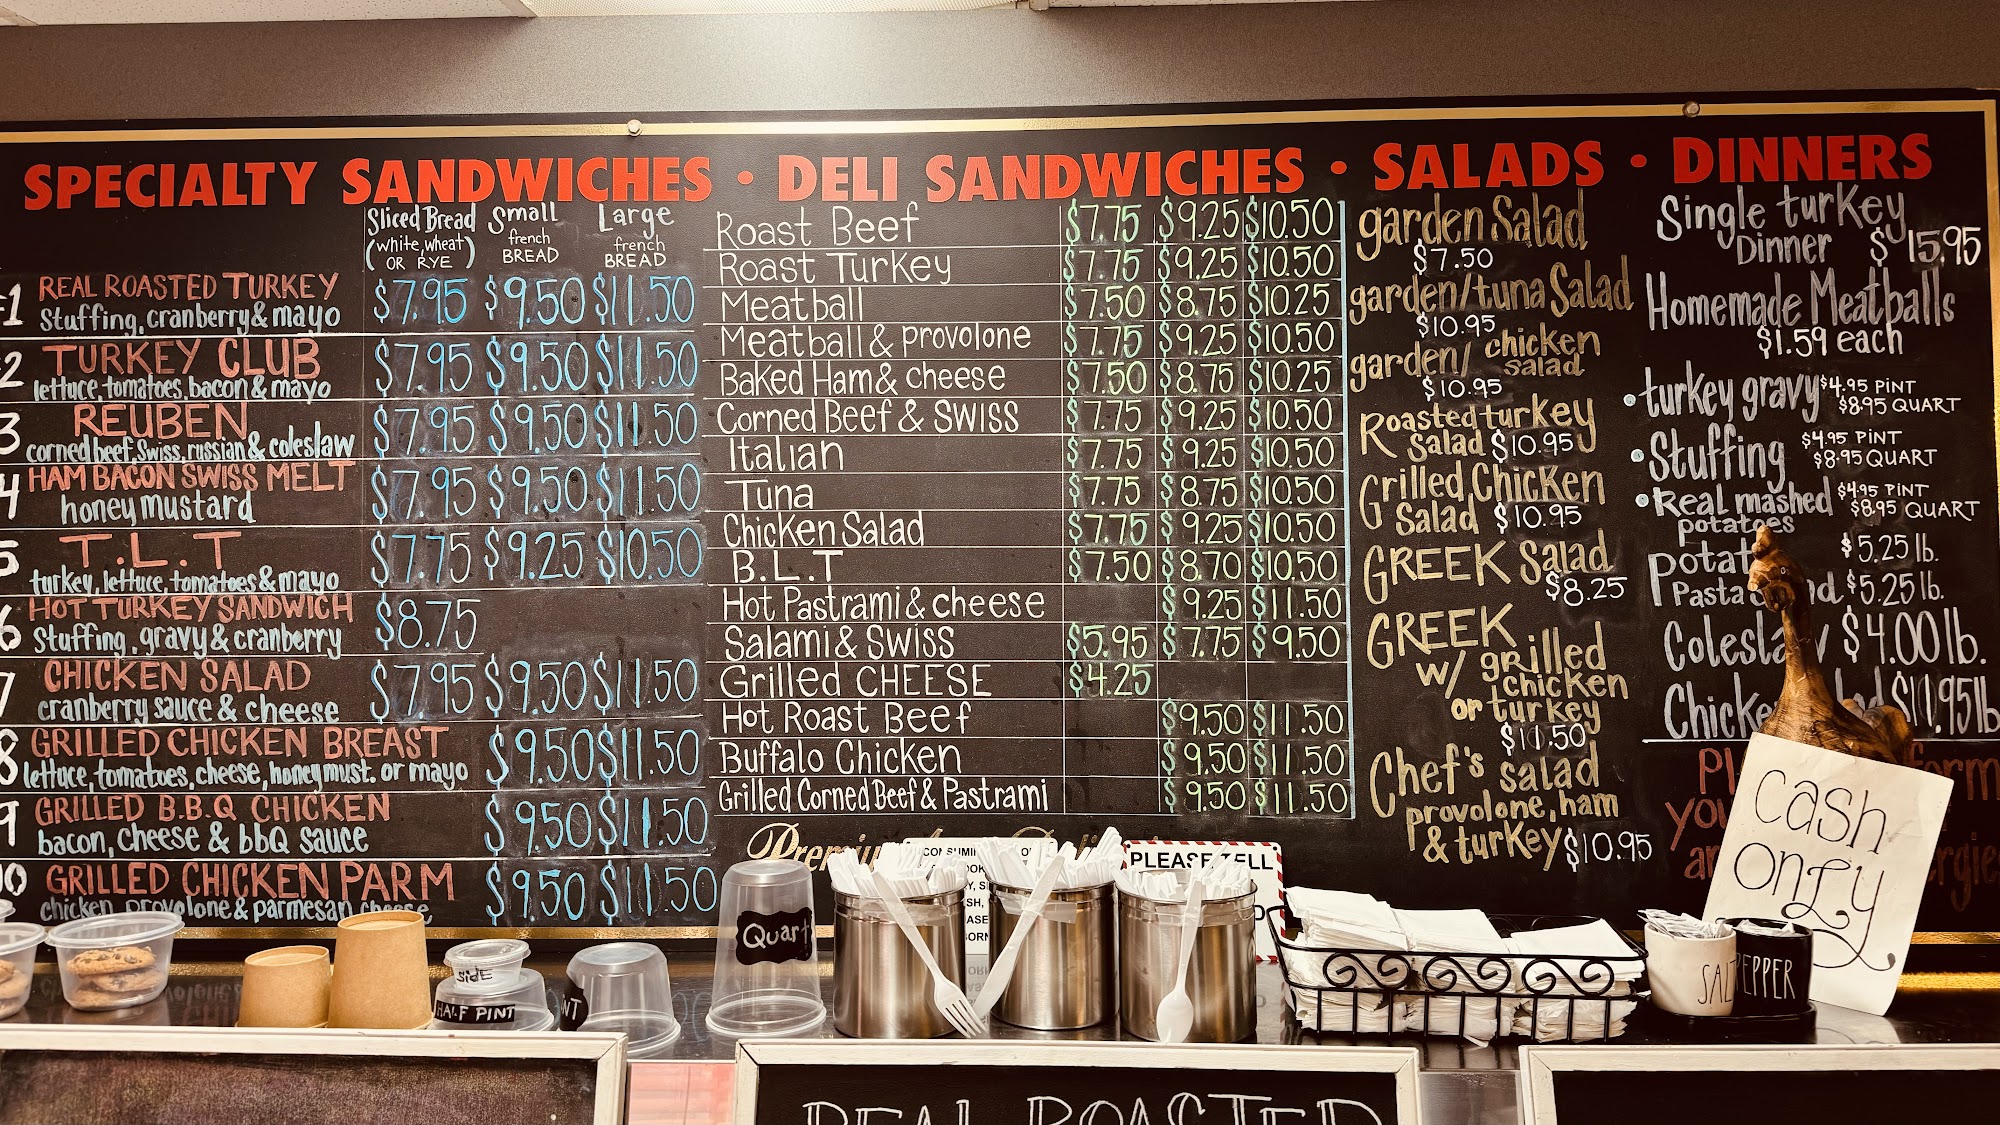 SPECIALTY SANDWICHES • DELI SANDWICHES • SALADS • DINNERS
Sliced Bread Small Large
(white, wheat) french french
OR RYE BREAD BREAD
#1 REAL ROASTED TURKEY $7.95 $9.50 $11.50
Stuffing, cranberry & mayo
2 TURKEY CLUB $7.95 $9.50 $11.50
lettuce, tomatoes, bacon & mayo
3 REUBEN $7.95 $9.50 $11.50
corned beef, Swiss, russian & coleslaw
4 HAM BACON SWISS MELT $7.95 $9.50 $11.50
honey mustard
5 T.L.T $7.75 $9.25 $10.50
turkey, lettuce, tomatoes & mayo
6 HOT TURKEY SANDWICH $8.75
Stuffing, gravy & cranberry
7 CHICKEN SALAD $7.95 $9.50 $11.50
cranberry sauce & cheese
8 GRILLED CHICKEN BREAST $9.50 $11.50
lettuce, tomatoes, cheese, honeymust. or mayo
9 GRILLED B.B.Q CHICKEN $9.50 $11.50
bacon, cheese & bbQ sauce
10 GRILLED CHICKEN PARM $9.50 $11.50
chicken, provolone & parmesan cheese
Roast Beef $7.75 $9.25 $10.50
Roast Turkey $7.75 $9.25 $10.50
Meatball $7.50 $8.75 $10.25
Meatball & provolone $7.75 $9.25 $10.50
Baked Ham & cheese $7.50 $8.75 $10.25
Corned Beef & SWISS $7.75 $9.25 $10.50
Italian $7.75 $9.25 $10.50
Tuna $7.75 $8.75 $10.50
Chicken Salad $7.75 $9.25 $10.50
B.L.T $7.50 $8.70 $10.50
Hot Pastrami & cheese $9.25 $11.50
Salami & SWISS $5.95 $7.75 $9.50
Grilled CHEESE $4.25
Hot Roast Beef $9.50 $11.50
Buffalo Chicken $9.50 $11.50
Grilled Corned Beef & Pastrami $9.50 $11.50
garden Salad
$7.50
garden/tuna Salad
$10.95
garden/ chicken
salad
$10.95
Roasted turkey
Salad $10.95
Grilled Chicken
Salad $10.95
GREEK Salad
$8.25
GREEK
w/ grilled
chicken
or turkey
$10.50
Chef's salad
provolone, ham
& turkey $10.95
Single turkey
Dinner $15.95
Homemade Meatballs
$1.59 each
• turkey gravy $4.95 PINT
$8.95 QUART
• Stuffing $4.95 PINT
$8.95 QUART
• Real mashed $4.95 PINT
potatoes $8.95 QUART
$5.25 lb.
Pasta $5.25 lb.
$4.00 lb.
$11.95 lb
Cash
only
PLEASE TELL
Quart
SiDE
HALF PINT
SALT
PEPPER
REAL ROASTED